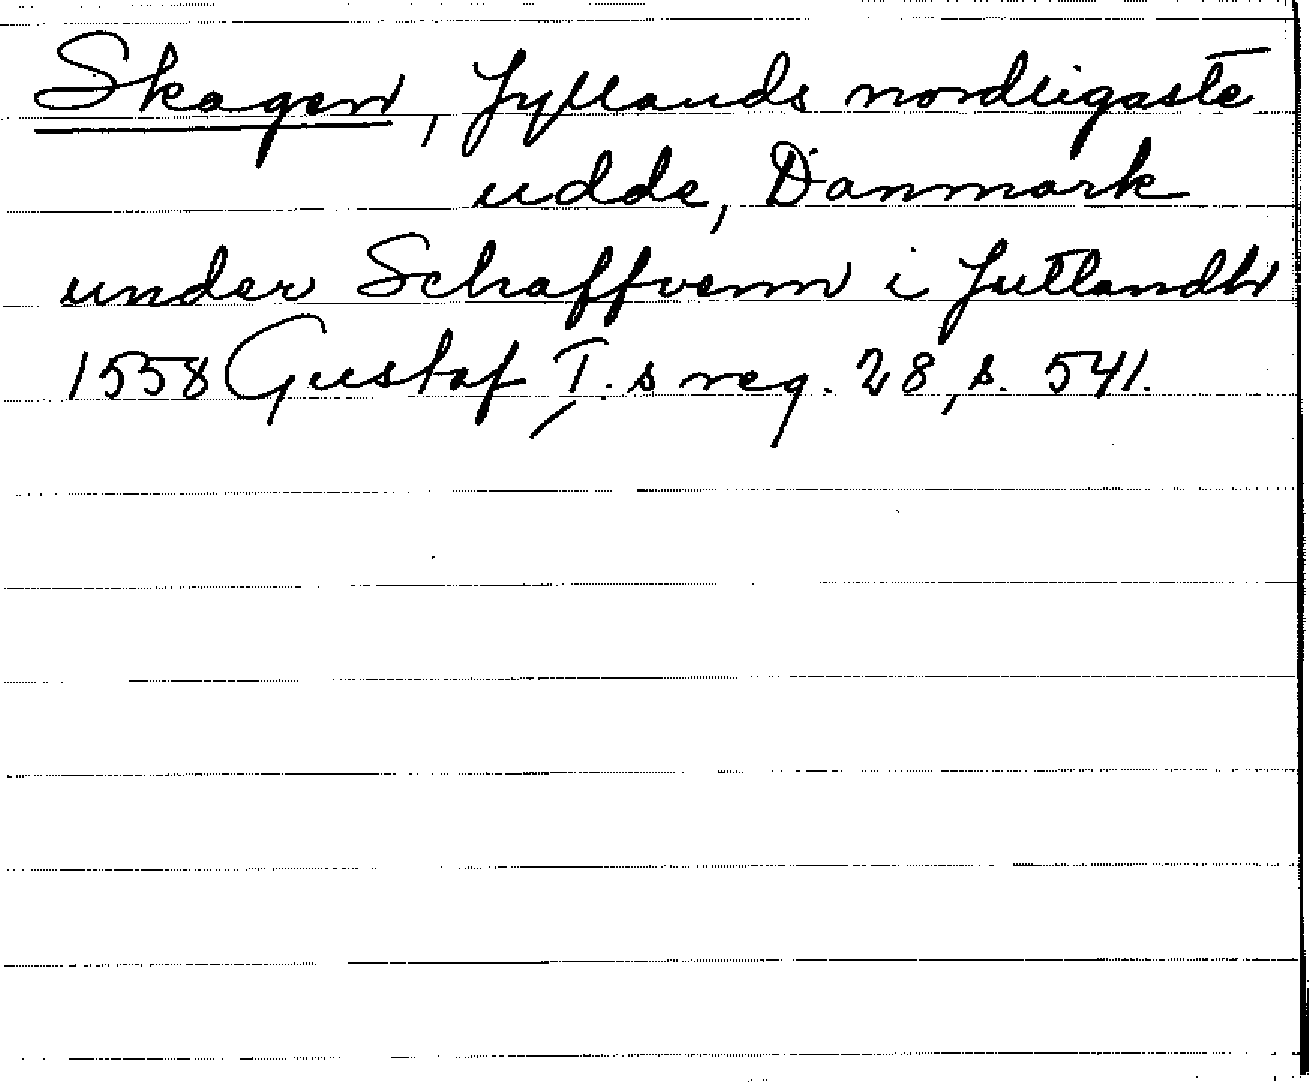 Skagen, Jyllands nordligaste
udde, Danmark
under Schaffvenn i Jutlandh
1558 Gustaf I.s reg. 28, s. 541.